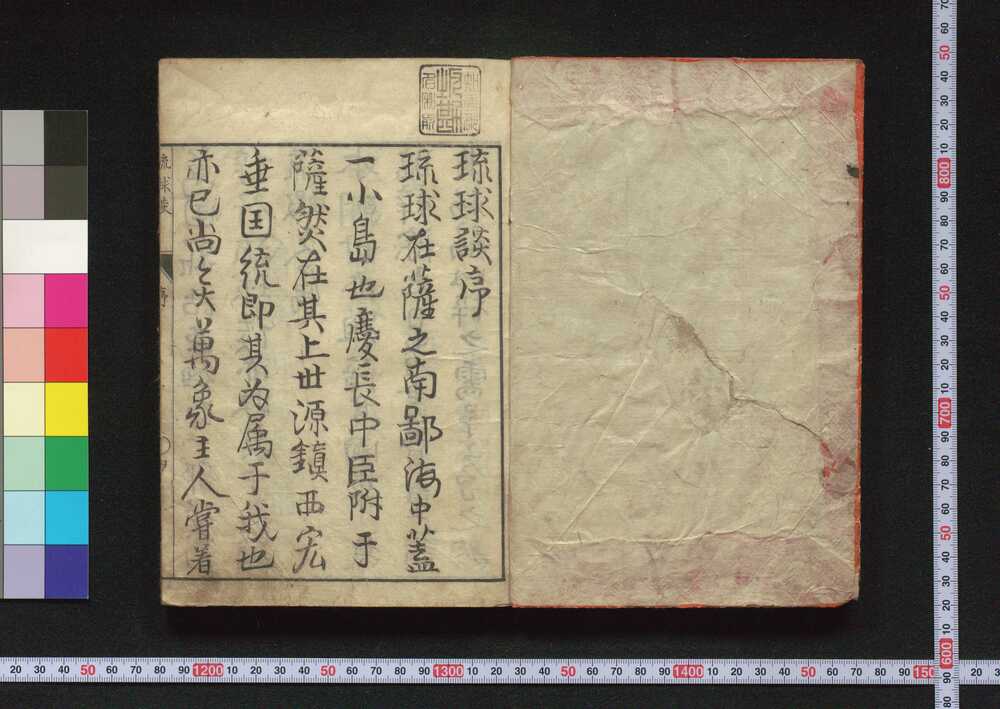 琉球談序
琉球在薩之南鄙海中蓋
一小島也慶長中臣附于
薩然在其上世源鎮西宏
垂国統即其為属于我也
亦已尚矣萬象主人嘗著
琉球談
序